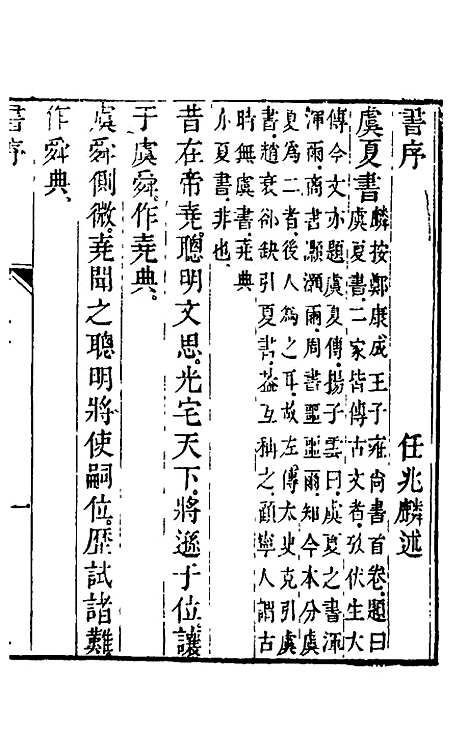 書序 任兆麟述
虞夏書 麟按鄭康成王子雍尚書首卷題曰
虞夏書二家皆傳古文者攷伏生大
傳今文亦題虞夏傳揚子雲曰虞夏之書渾
渾爾商書灝灝爾周書噩噩爾知今本分虞
夏爲二者後人爲之耳故左傳太史克引虞
書趙衰郤缺引夏書葢互稱之顧寧人謂古
時無虞書堯典
亦夏書非也
昔在帝堯聰明文思光宅天下將遜于位讓
于虞舜作堯典
虞舜側微堯聞之聰明將使嗣位歷試諸難
作舜典
書序 一